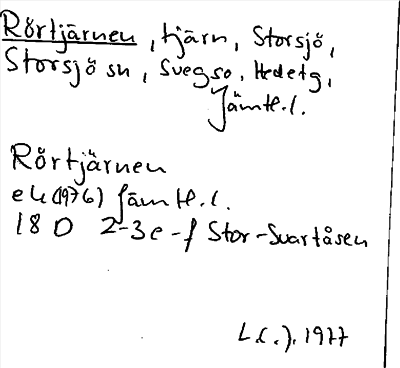 Rörtjärnen, tjärn, Storsjö,
Storsjö sn, Svegs o, Hedetg,
Jämtl. l.
Rörtjärnen
ek (1976) Jämtl. l.
18 D 2-3e-f Stor-Svartåsen
L.C.J. 1977